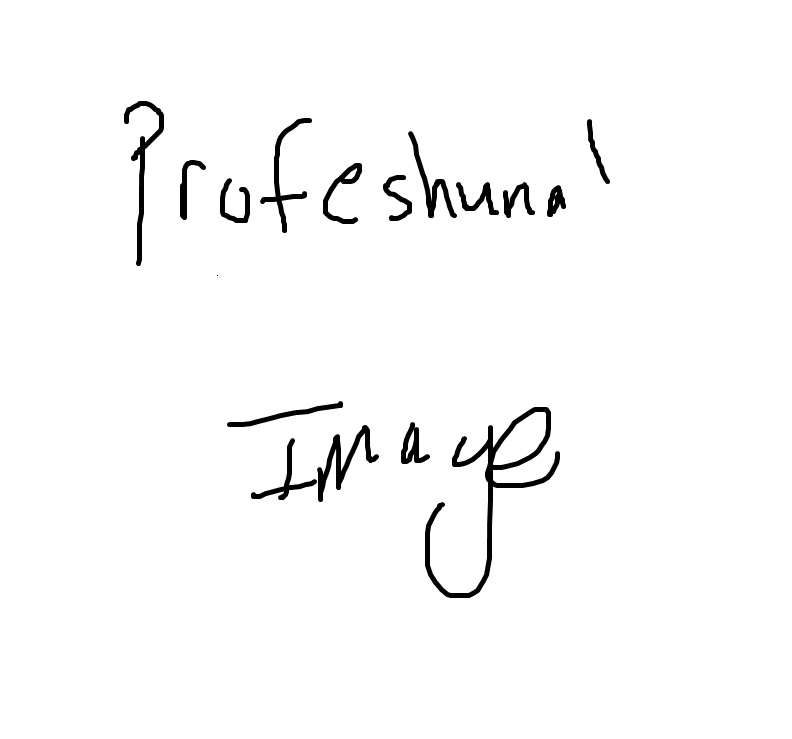 Profeshunal
Image